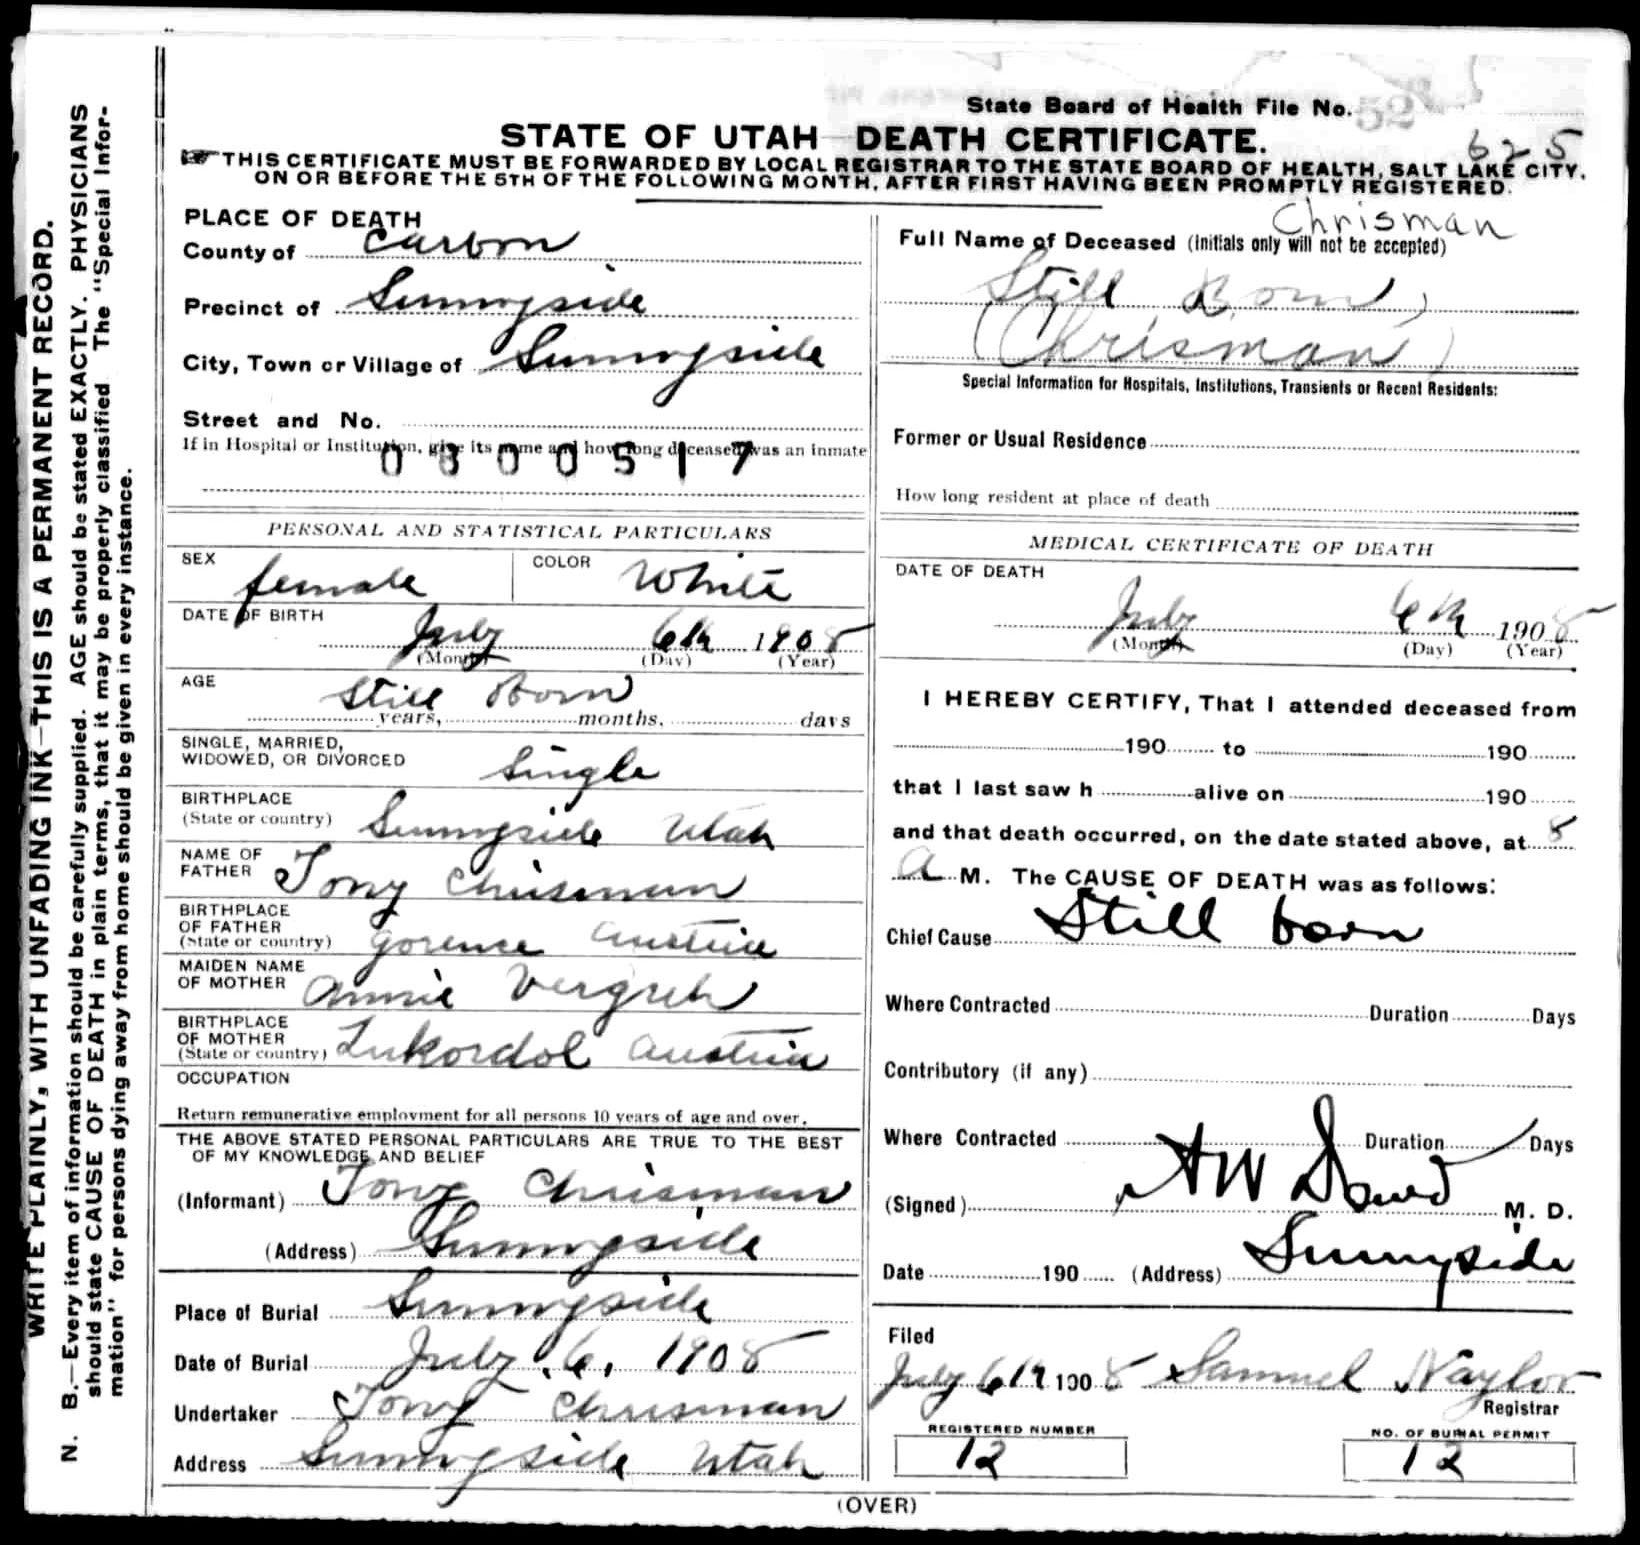 WRITE PLAINLY, WITH UNFADING INK—THIS IS A PERMANENT RECORD.
N. B.—Every item of information should be carefully supplied. AGE should be stated EXACTLY. PHYSICIANS
should state CAUSE OF DEATH in plain terms, that it may be properly classified The "Special Infor-
mation" for persons dying away from home should be given in every instance.
State Board of Health File No. 52
STATE OF UTAH—DEATH CERTIFICATE.
625
THIS CERTIFICATE MUST BE FORWARDED BY LOCAL REGISTRAR TO THE STATE BOARD OF HEALTH, SALT LAKE CITY,
ON OR BEFORE THE 5TH OF THE FOLLOWING MONTH, AFTER FIRST HAVING BEEN PROMPTLY REGISTERED.
PLACE OF DEATH
County of Carbon
Precinct of Sunnyside
City, Town or Village of Sunnyside
Street and No.
If in Hospital or Institution, give its name and how long deceased was an inmate
0300517
PERSONAL AND STATISTICAL PARTICULARS
SEX female COLOR White
DATE OF BIRTH July 6th 1908
(Month) (Day) (Year)
AGE Still Born
years, months, days
SINGLE, MARRIED,
WIDOWED, OR DIVORCED Single
BIRTHPLACE
(State or country) Sunnyside Utah
NAME OF
FATHER Tony Chrisman
BIRTHPLACE
OF FATHER
(State or country) Gorence Austria
MAIDEN NAME
OF MOTHER Annie Vergreh
BIRTHPLACE
OF MOTHER
(State or country) Lukordol Austria
OCCUPATION
Return remunerative employment for all persons 10 years of age and over.
THE ABOVE STATED PERSONAL PARTICULARS ARE TRUE TO THE BEST
OF MY KNOWLEDGE AND BELIEF
(Informant) Tony Chrisman
(Address) Sunnyside
Place of Burial Sunnyside
Date of Burial July, 6, 1908
Undertaker Tony Chrisman
Address Sunnyside Utah
Chrisman
Full Name of Deceased (Initials only will not be accepted)
Still Born
(Chrisman)
Special Information for Hospitals, Institutions, Transients or Recent Residents:
Former or Usual Residence
How long resident at place of death
MEDICAL CERTIFICATE OF DEATH
DATE OF DEATH
July 6th 1908
(Month) (Day) (Year)
I HEREBY CERTIFY, That I attended deceased from
190 to 190
that I last saw h alive on 190
and that death occurred, on the date stated above, at 8
A M. The CAUSE OF DEATH was as follows:
Chief Cause Still born
Where Contracted Duration Days
Contributory (if any)
Where Contracted Duration Days
(Signed) A W Dowd M. D.
Date 190 (Address) Sunnyside
Filed
July 6th 1908 Samuel Naylor
Registrar
REGISTERED NUMBER
12
NO. OF BURIAL PERMIT
12
(OVER)